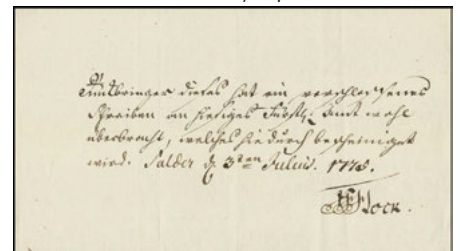 Einbringer dieses hat ein verschlossenes
Schreiben an hiesiges Fürstl. Amt wohl
überbracht, welches hiedurch bescheiniget
wird. Salder d. 3ten Julius. 1778.
Flock.